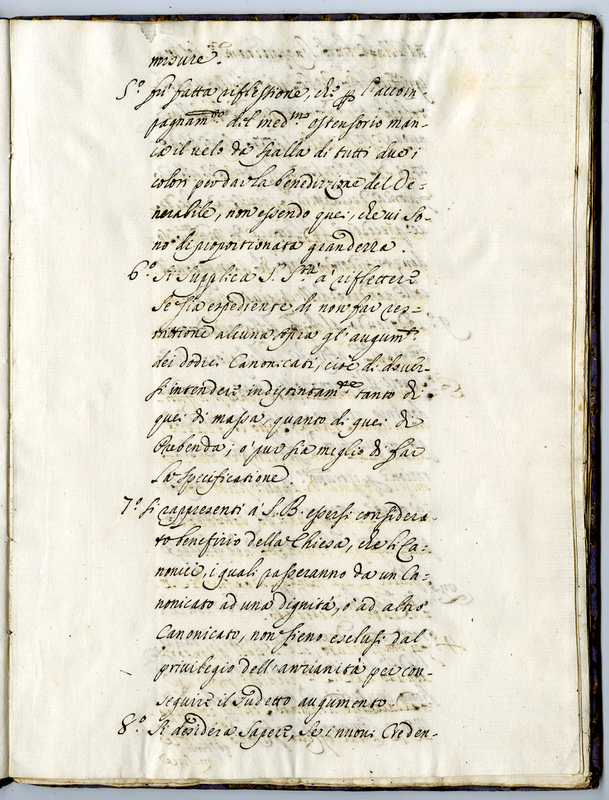 misure.
5.º fù fatta riflessione, che p l'accom-
pagnam.to del med.mo ostensorio man-
ca il velo da spalla di tutti due i
colori per dar la benedizzione del Ve-
nerabile, non essendo quei, che vi so-
no di proportionata grandezza.
6.º Si supplica S. S.tà à riflettere
se sia espediente di non far res-
trittione alcuna sopra gl'augum.ti
dei dodici Canonicati, cioè di dover-
si intendere indistintam.te tanto di
quei di massa, quanto di quei di
Prebenda; o' pur sia meglio di far
la specificatione.
7.º Si rappresenti à S. B. essersi considera-
to beneficio della Chiesa, che li Ca-
nonici, i quali passeranno da un Ca-
nonicato ad una dignità, ò ad altro
Canonicato, non sieno esclusi dal
privilegio dell'anzianità per con-
seguire il sudetto augumento
8.º Si desidera sapere, se i nuovi Creden-